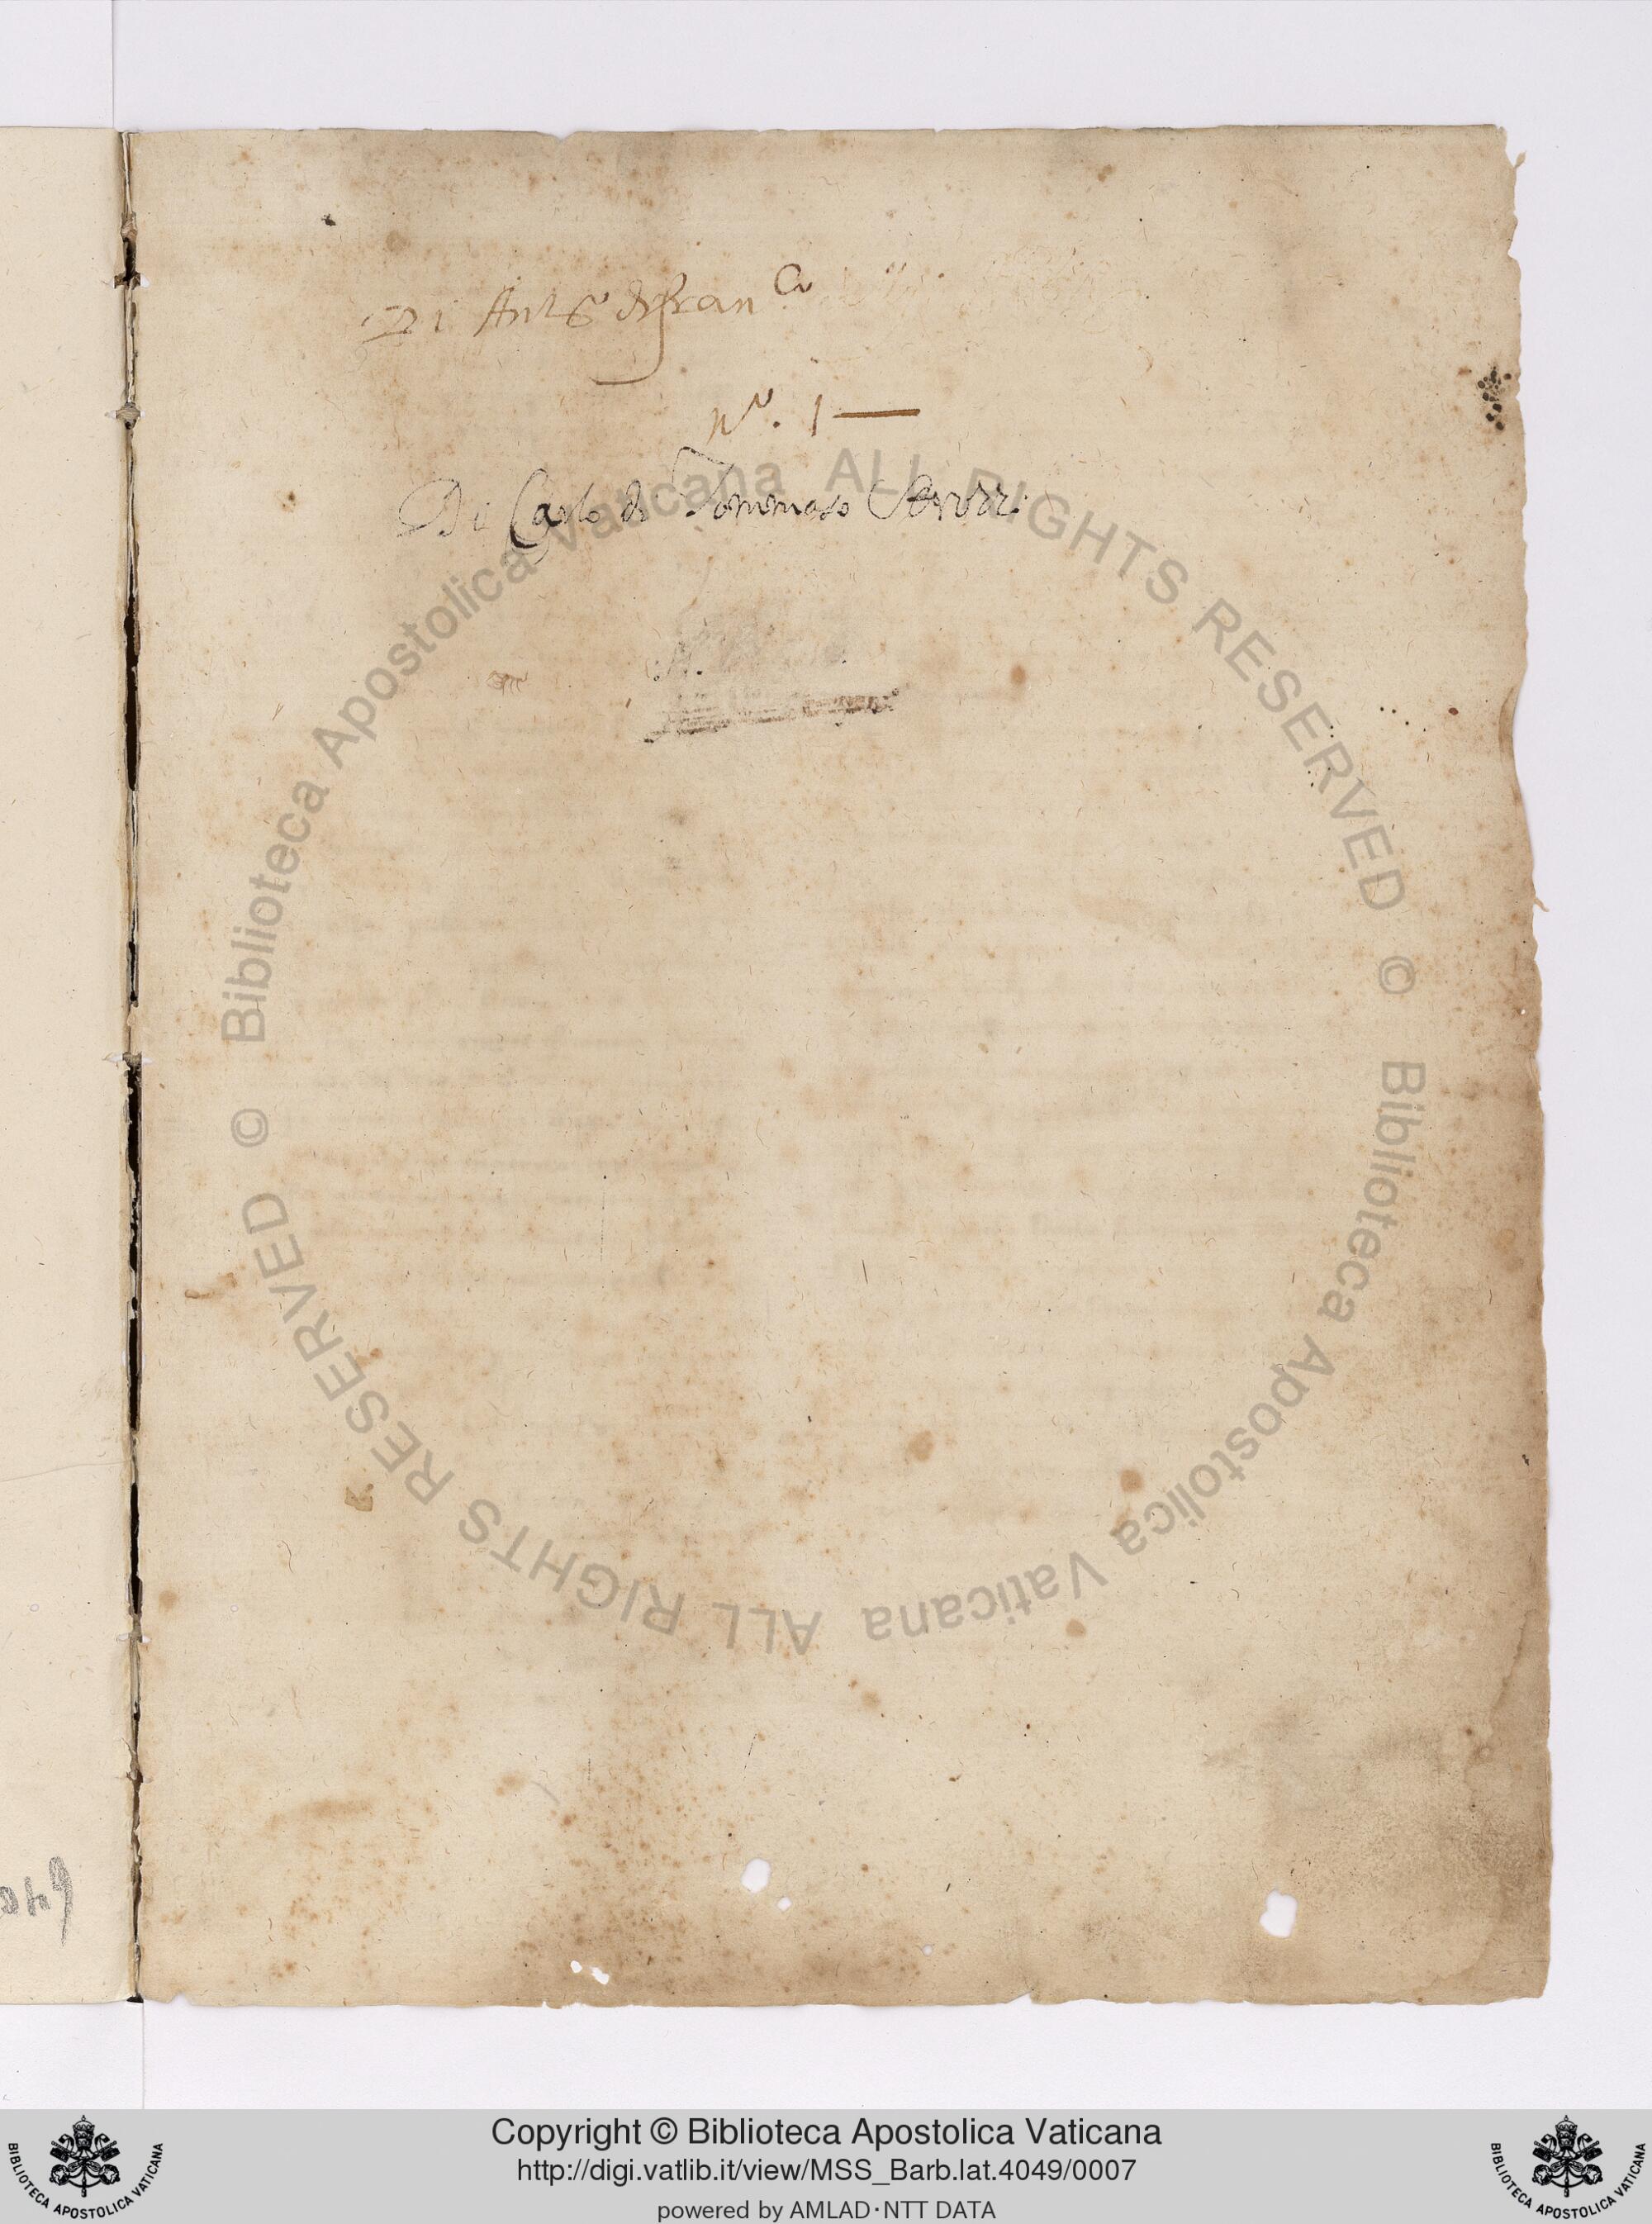 Di Ant.º di Fran.co
Nº. 1
Di Carlo di Tommaso Strozzi
© Biblioteca Apostolica Vaticana ALL RIGHTS RESERVED © Biblioteca Apostolica Vaticana ALL RIGHTS RESERVED
Copyright © Biblioteca Apostolica Vaticana
http://digi.vatlib.it/view/MSS_Barb.lat.4049/0007
powered by AMLAD·NTT DATA
BIBLIOTECA APOSTOLICA VATICANA
BIBLIOTECA APOSTOLICA VATICANA